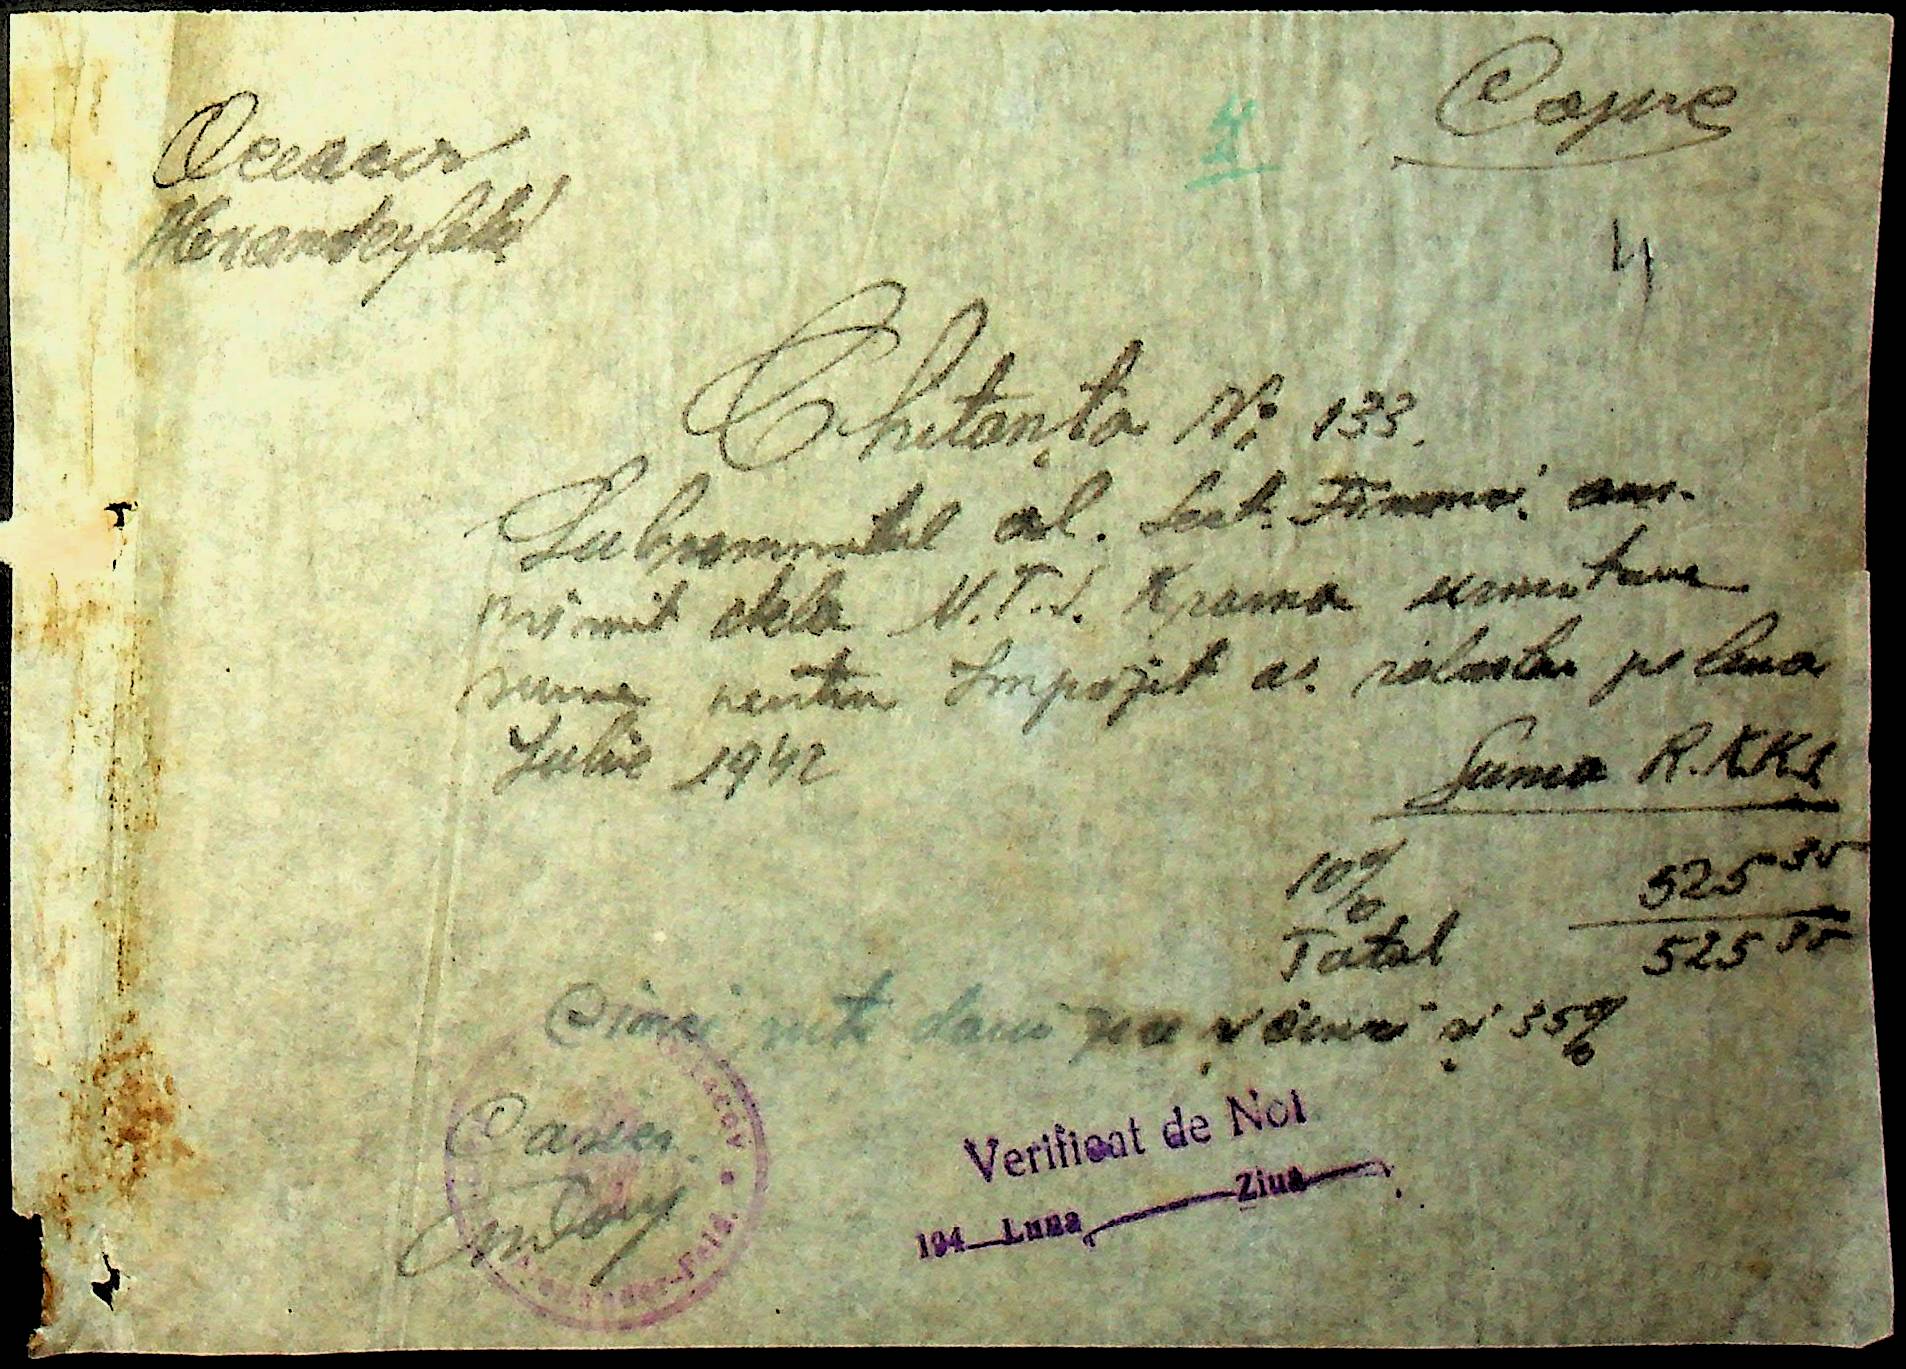 Copie
4
4
Oceacov
Alexanderfeld
Chitanța No 133.
Subsemnatul al. Sect. Financi. am
primit dela M.T.S. Krasna urmatoarea
suma pentru Impozit as. salariilor pe luna
Iulie 1942
Suma R.K.K.S
10% 525 35
Total 525 35
Cinci sute două zeci și cinci și 35%
Casier
Verificat de Noi
194 Luna Ziua